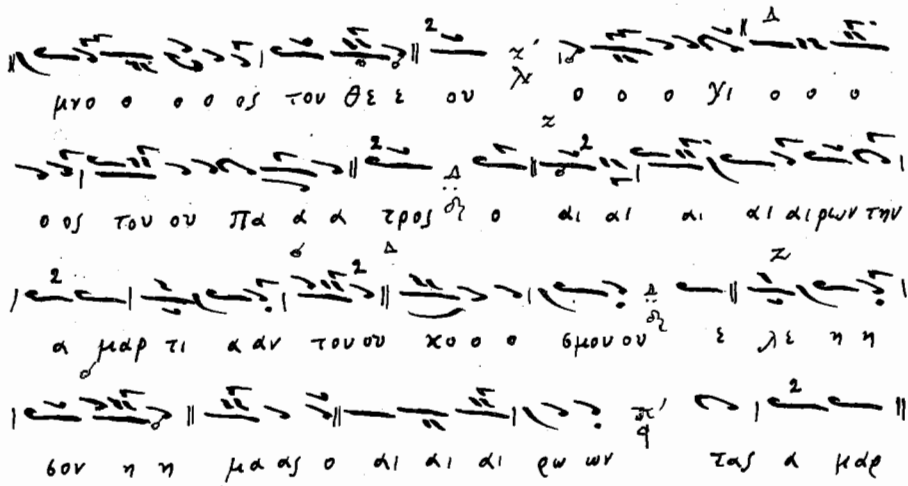 μνο ο ο ο ος του θε ε ου ο ο ο Υι ο ο ο
ο ος του ου Πα α α τρος ο αι αι αι αι αι ρων την
α μαρ τι α αν του ου κο ο ο σμου ου ε λε η η
σον η η μα ας ο αι αι αι ρω ων τας α μαρ